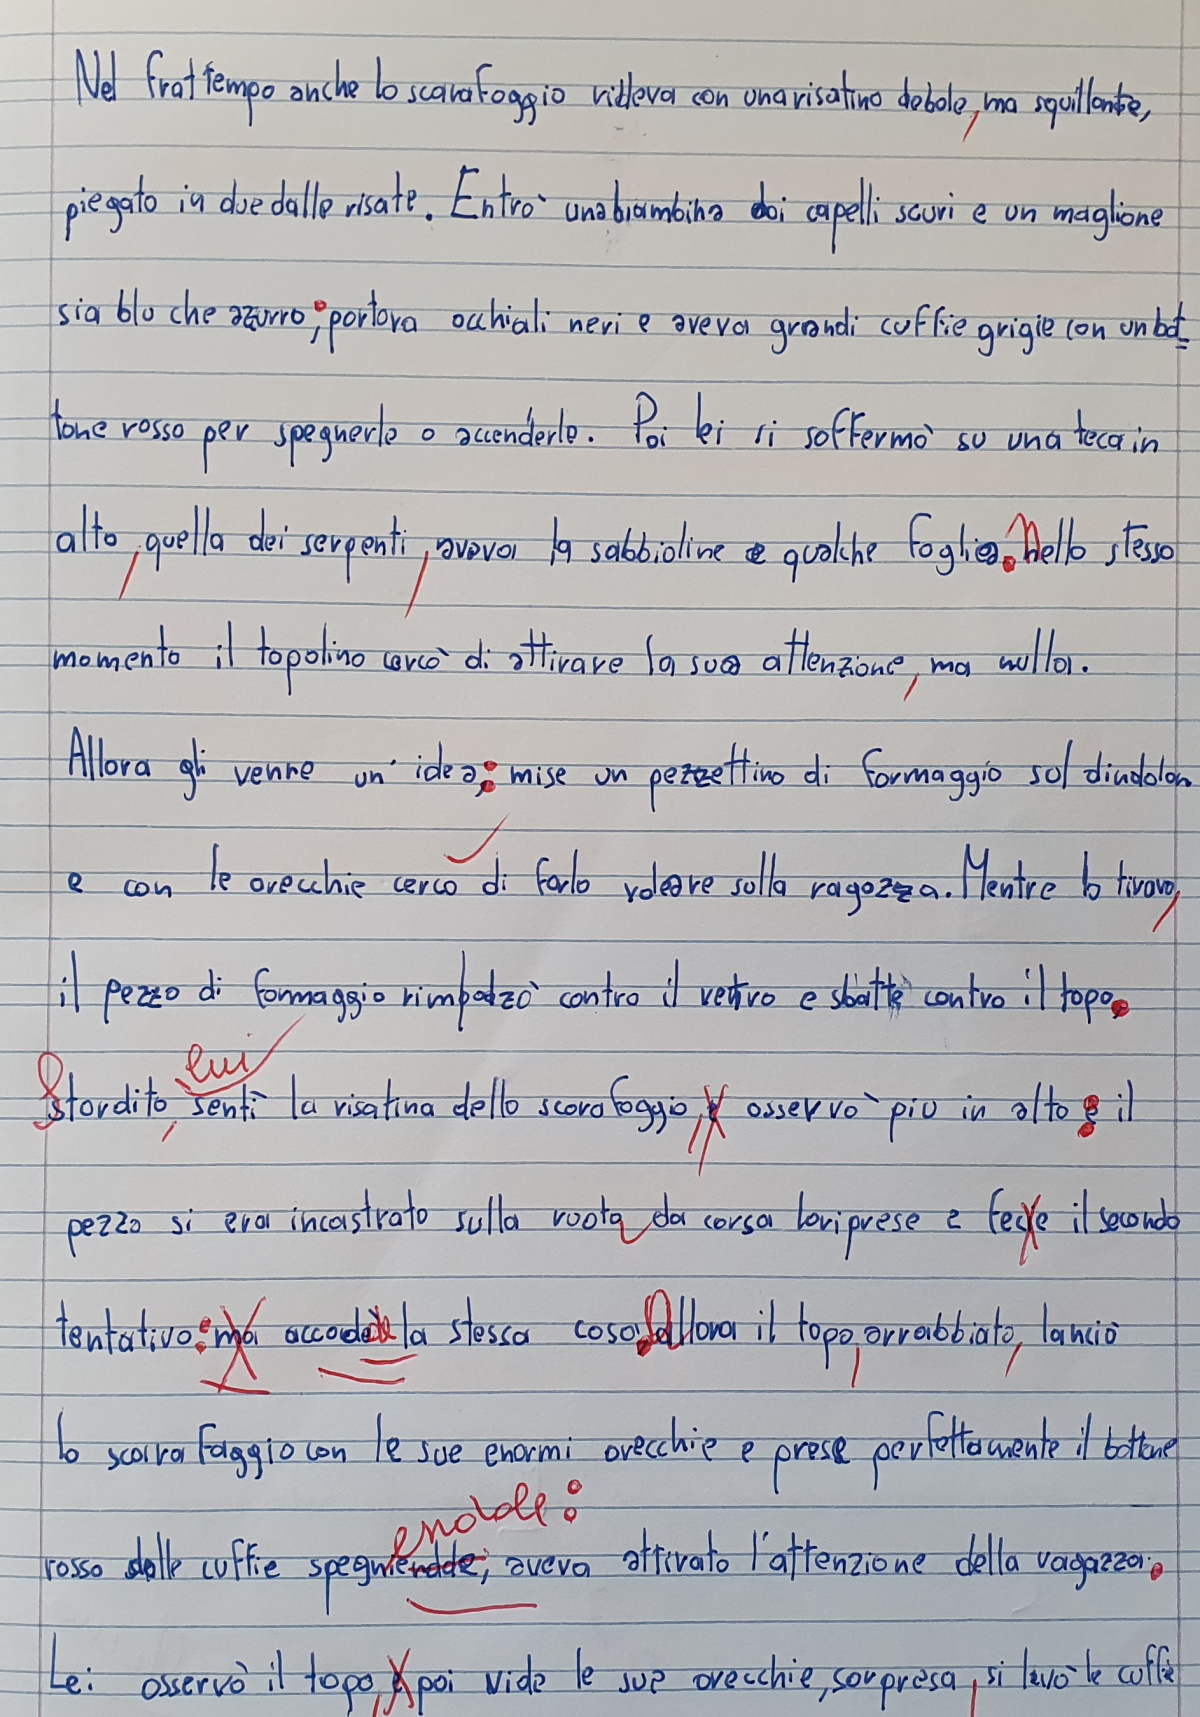 Nel frattempo anche lo scarafoggio rideva con una risatina debole, ma squillante,
piegato in due dalle risate. Entrò una biambina dai capelli scuri e un maglione
sia blu che azzurro; portava occhiali neri e aveva grandi cuffie grigie con un bot
tone rosso per spegnerle o accenderle. Poi lei si soffermò su una teca in
alto, quella dei serpenti, aveva la sabbioline e qualche foglia. Nello stesso
momento il topolino cercò di attirare la sua attenzione, ma nulla.
Allora gli venne un'idea: mise un pezzettino di formaggio sol dindolon
e con le orecchie cercò di farlo voleare sulla ragazza. Mentre lo tirava,
il pezzo di formaggio rimpalzò contro il vetro e sbattè contro il topo.
lui
Stordito, sentì la risatina dello scarafoggio, osservò più in alto: il
pezzo si era incastrato sulla ruota da corsa lo riprese e fece il secondo
tentativo: ma accadde la stessa cosa. Allora il topo, arrabbiato, lanciò
lo scarrafaggio con le sue enormi orecchie e prese perfettamente il bottone
endole:
rosso delle cuffie aveva attirato l'attenzione della ragazza.
Lei osservò il topo, poi vide le sue orecchie, sorpresa, si levò le cuffie